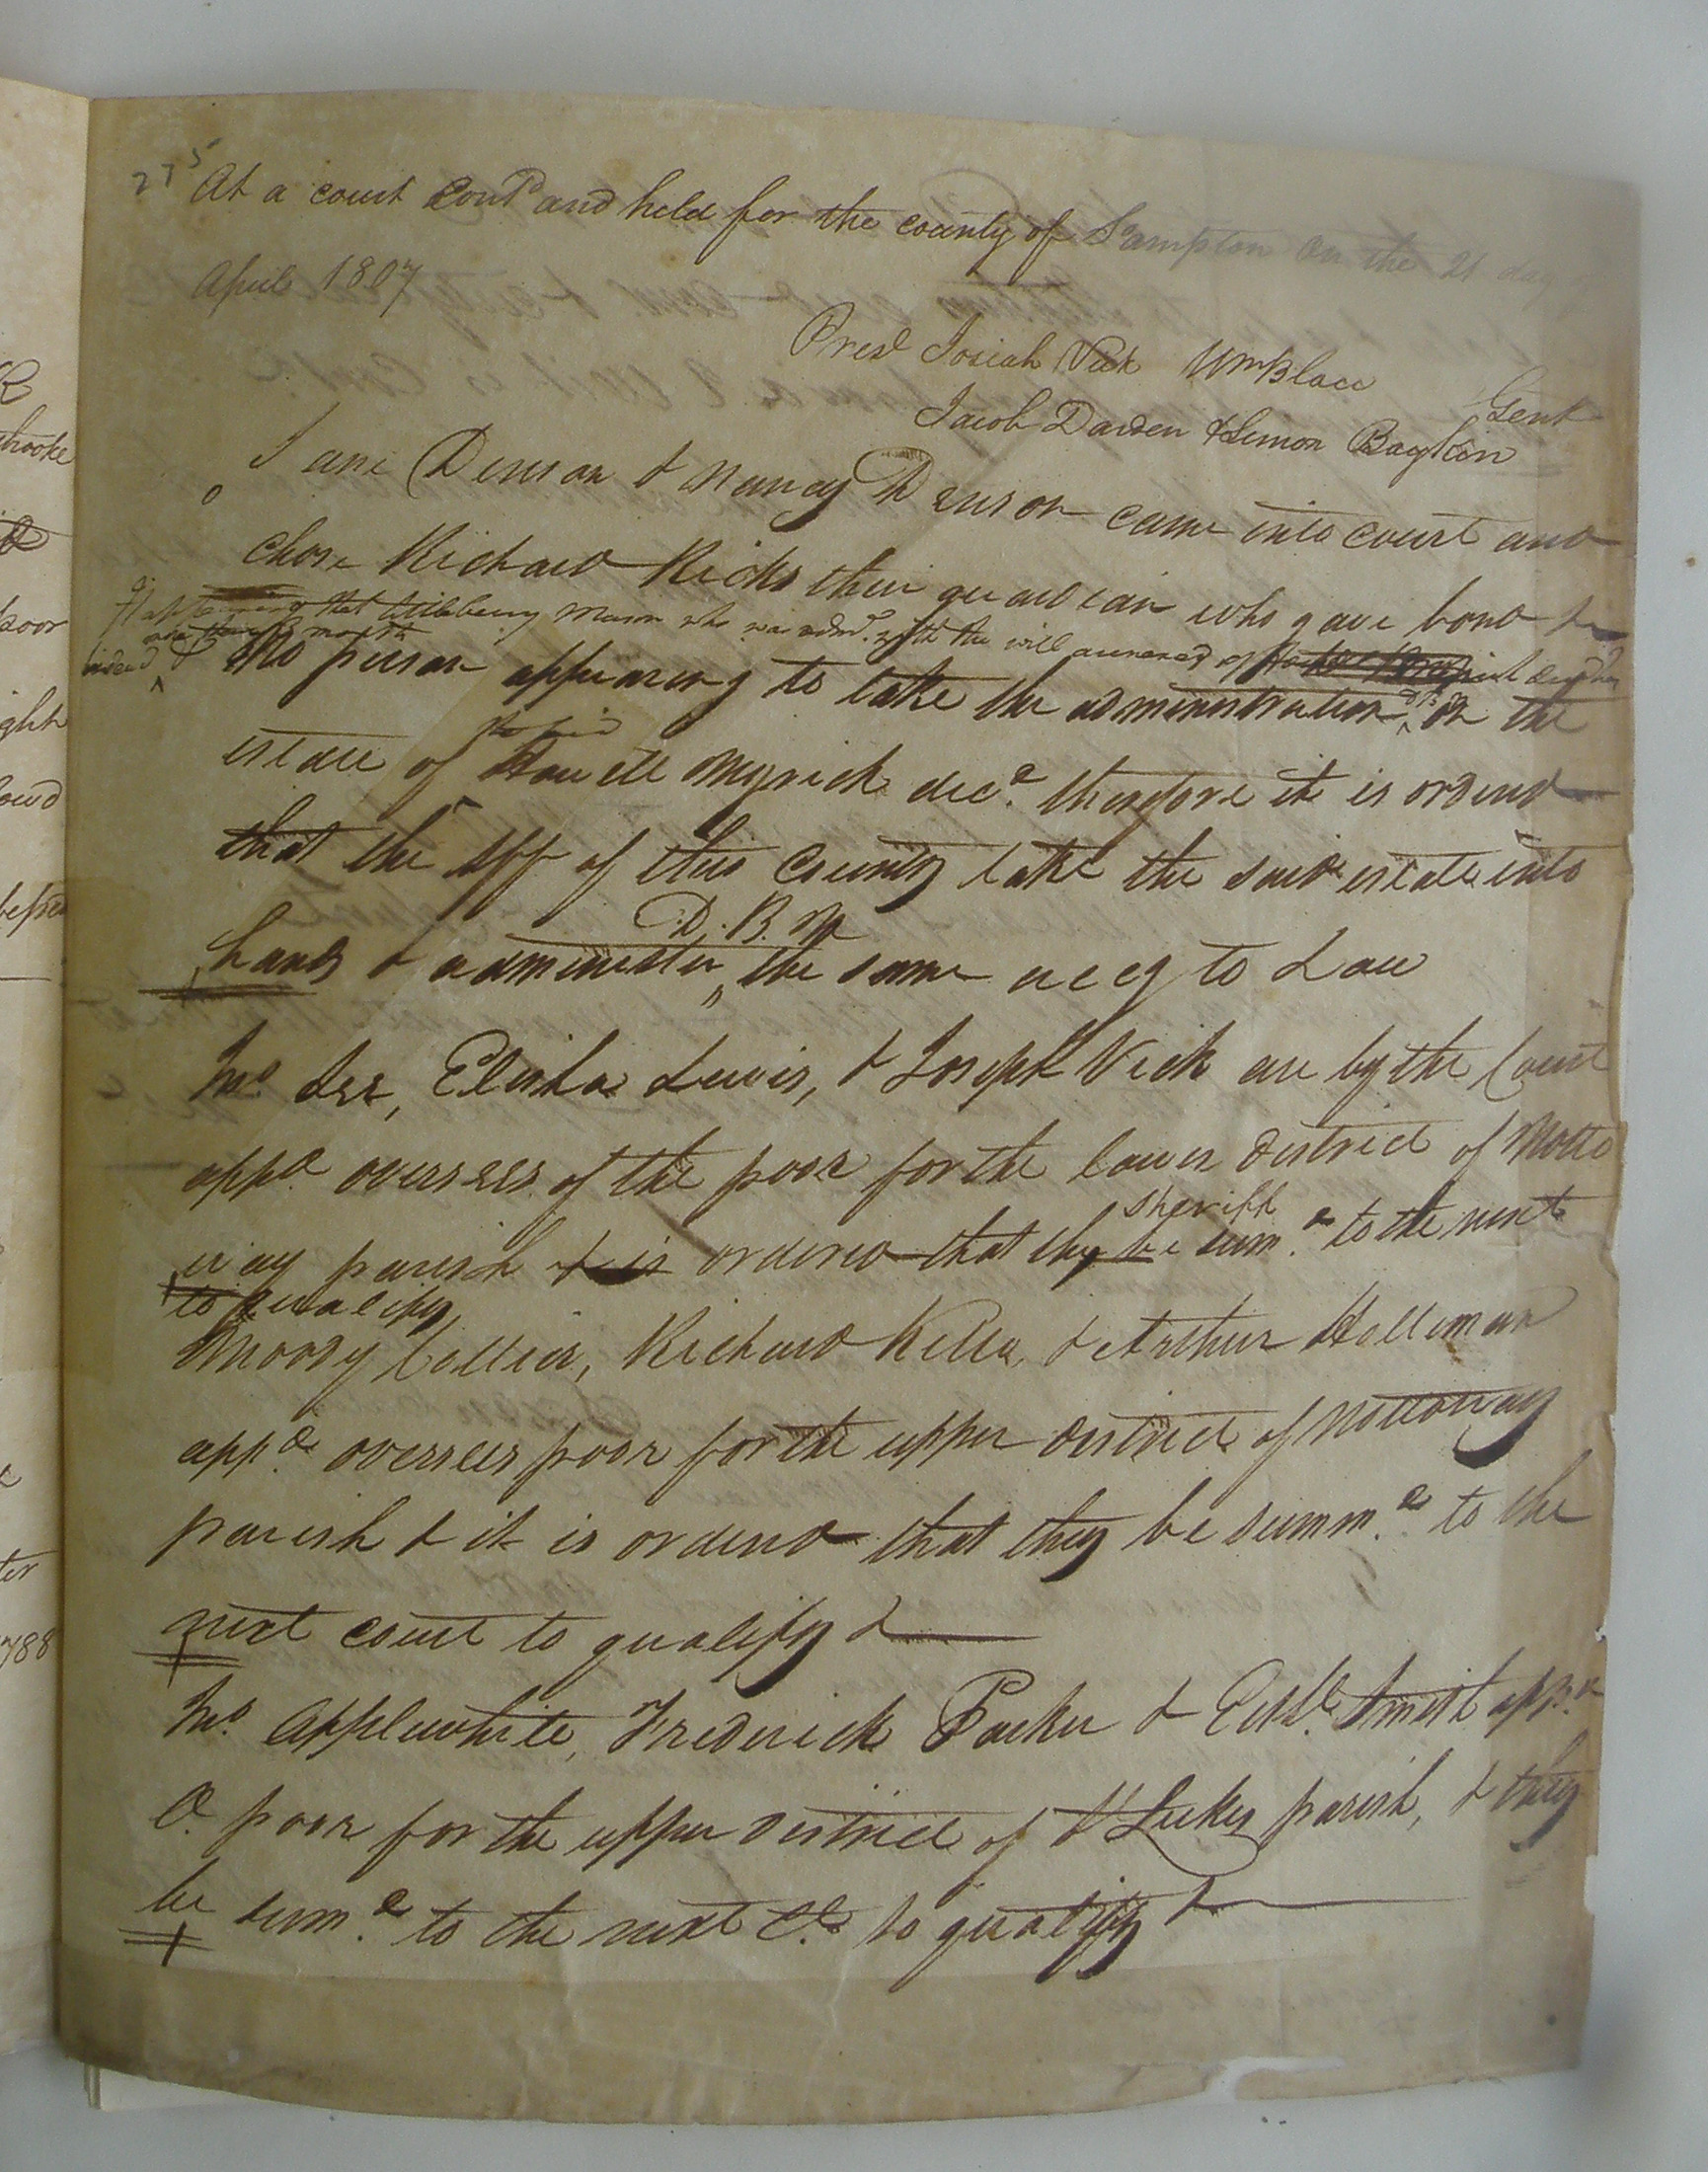 275
At a court Cont.d and held for the county of S.ampton on the 21 day
April 1807
Pres.t Josiah Vick Wm Blace
Jacob Darden & Simon Boykin Gent
Jane Denson & Nancy Denson came into court and
chose Richard Ricks their guardian who gave bond &c
that Littleberry Mason who was adm.r with the will annexed of
& No person appearing to take the administration D.B.N on the
estate of Howell Myrick dec.d therefore it is orderd
that the Sff of this County take the said estate into
D. B. N
hands & administer the same accg to Law
Jn.o Lee, Elisha Lewis, & Joseph Vick are by the Court
app.d overseers of the poor for the lower district of Notto
sheriff
way parish & is orderd that they be sum.d to the next
to qualify
Moody Collier, Richard Kello, & Arthur Holleman
app.d overseers poor for the upper district of Nottoway
parish & it is orderd that they be summ.d to the
next court to qualify &
Jn.o Applewhite, Frederick Parker & Smith app.d
O. poor for the upper district of St Lukes parish, & they
be sum.d to the next Ct. to qualify &